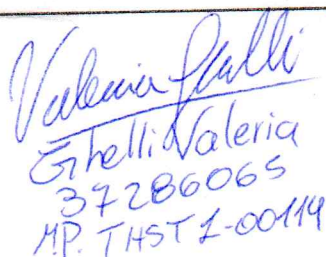 Valeria Ghelli
Ghelli Valeria
37286065
M.P. THST 1-00114